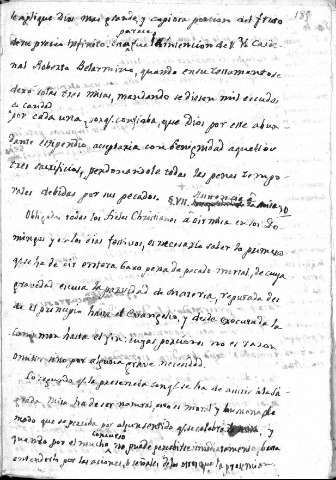 le aplique Dios mas grande, y copiosa porcion del fruto
parece
de su precio infinito. esta fue la intencion del V. Carde-
nal Roberto Belarmino, quando en su testamento se
dexo solas tres misas, mandando se diesen mil escudos
en caridad
por cada una, porq. confiaba, que Dios por este abun-
dante estipendio, aceptaria con benignidad aquellos
tres sacrificios, perdonandole todas las penas tempo-
rales debidas por sus pecados. §. VII.
Obligados todos los fieles Christianos a oir misa en los Do-
mingos y en los dias festivos, es necesario saber lo primero
que se ha de oir entera baxo pena de pecado mortal, de cuya
gravedad escusa la parvidad de materia, reputada des-
de el principio hasta el Evangelio, y desde executada la
comunion hasta el fin: cuyas porciones no es razon
omitir sino por alguna grave necesidad.
Lo segundo q. la presencia conq. se ha de asistir a la sa-
grada misa ha de ser natural, o en el moral y humano
modo que se perciba por algun sentido que celebra, y
concurso
quando por el mucho no puede percibirse inmediatamente, basta
entenderlo por las acciones, o señales de los otros que la